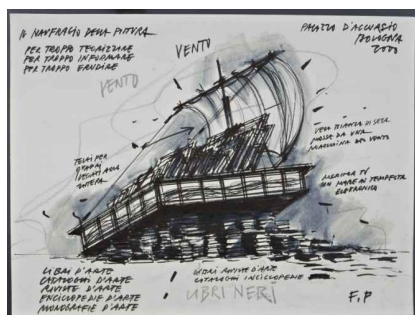 IL NAUFRAGIO DELLA PITTURA
PER TROPPO TEORIZZARE
PER TROPPO INFORMARE
PER TROPPO ERUDIRE
VENTO
VENTO
PALAZZO D'ACCURSIO
BOLOGNA
2000
TELAI PER
QUADRI
VELA BIANCA DI SETA
MOSSA DA UNA
MACCHINA DEL VENTO
UN MARE IN TEMPESTA
ELETTRONICA
LIBRI D'ARTE
CATALOGHI D'ARTE
RIVISTE D'ARTE
ENCICLOPEDIE D'ARTE
MONOGRAFIE D'ARTE
LIBRI RIVISTE D'ARTE
CATALOGHI ENCICLOPEDIE
LIBRI NERI
F.P